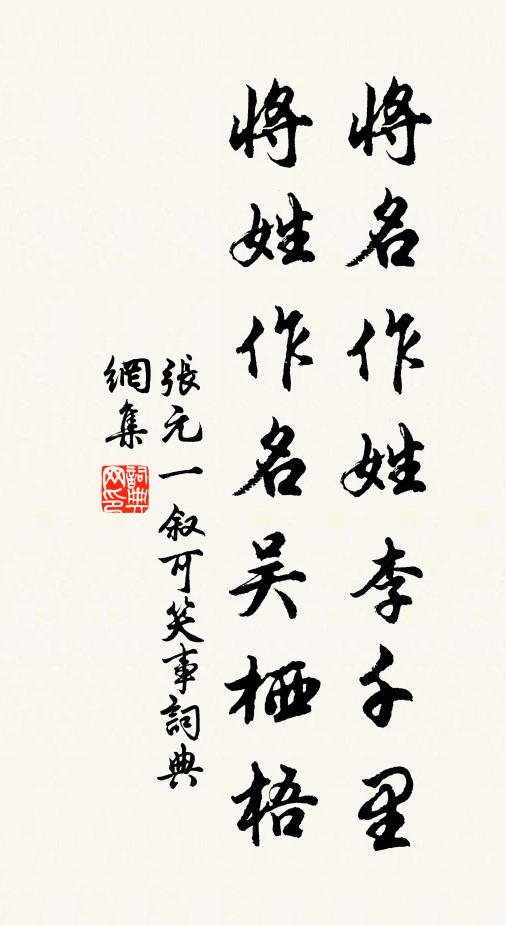 將名作姓李千里
將姓作名吳栖梧
張元一叙可笑事詞典
網集
詞典
网印